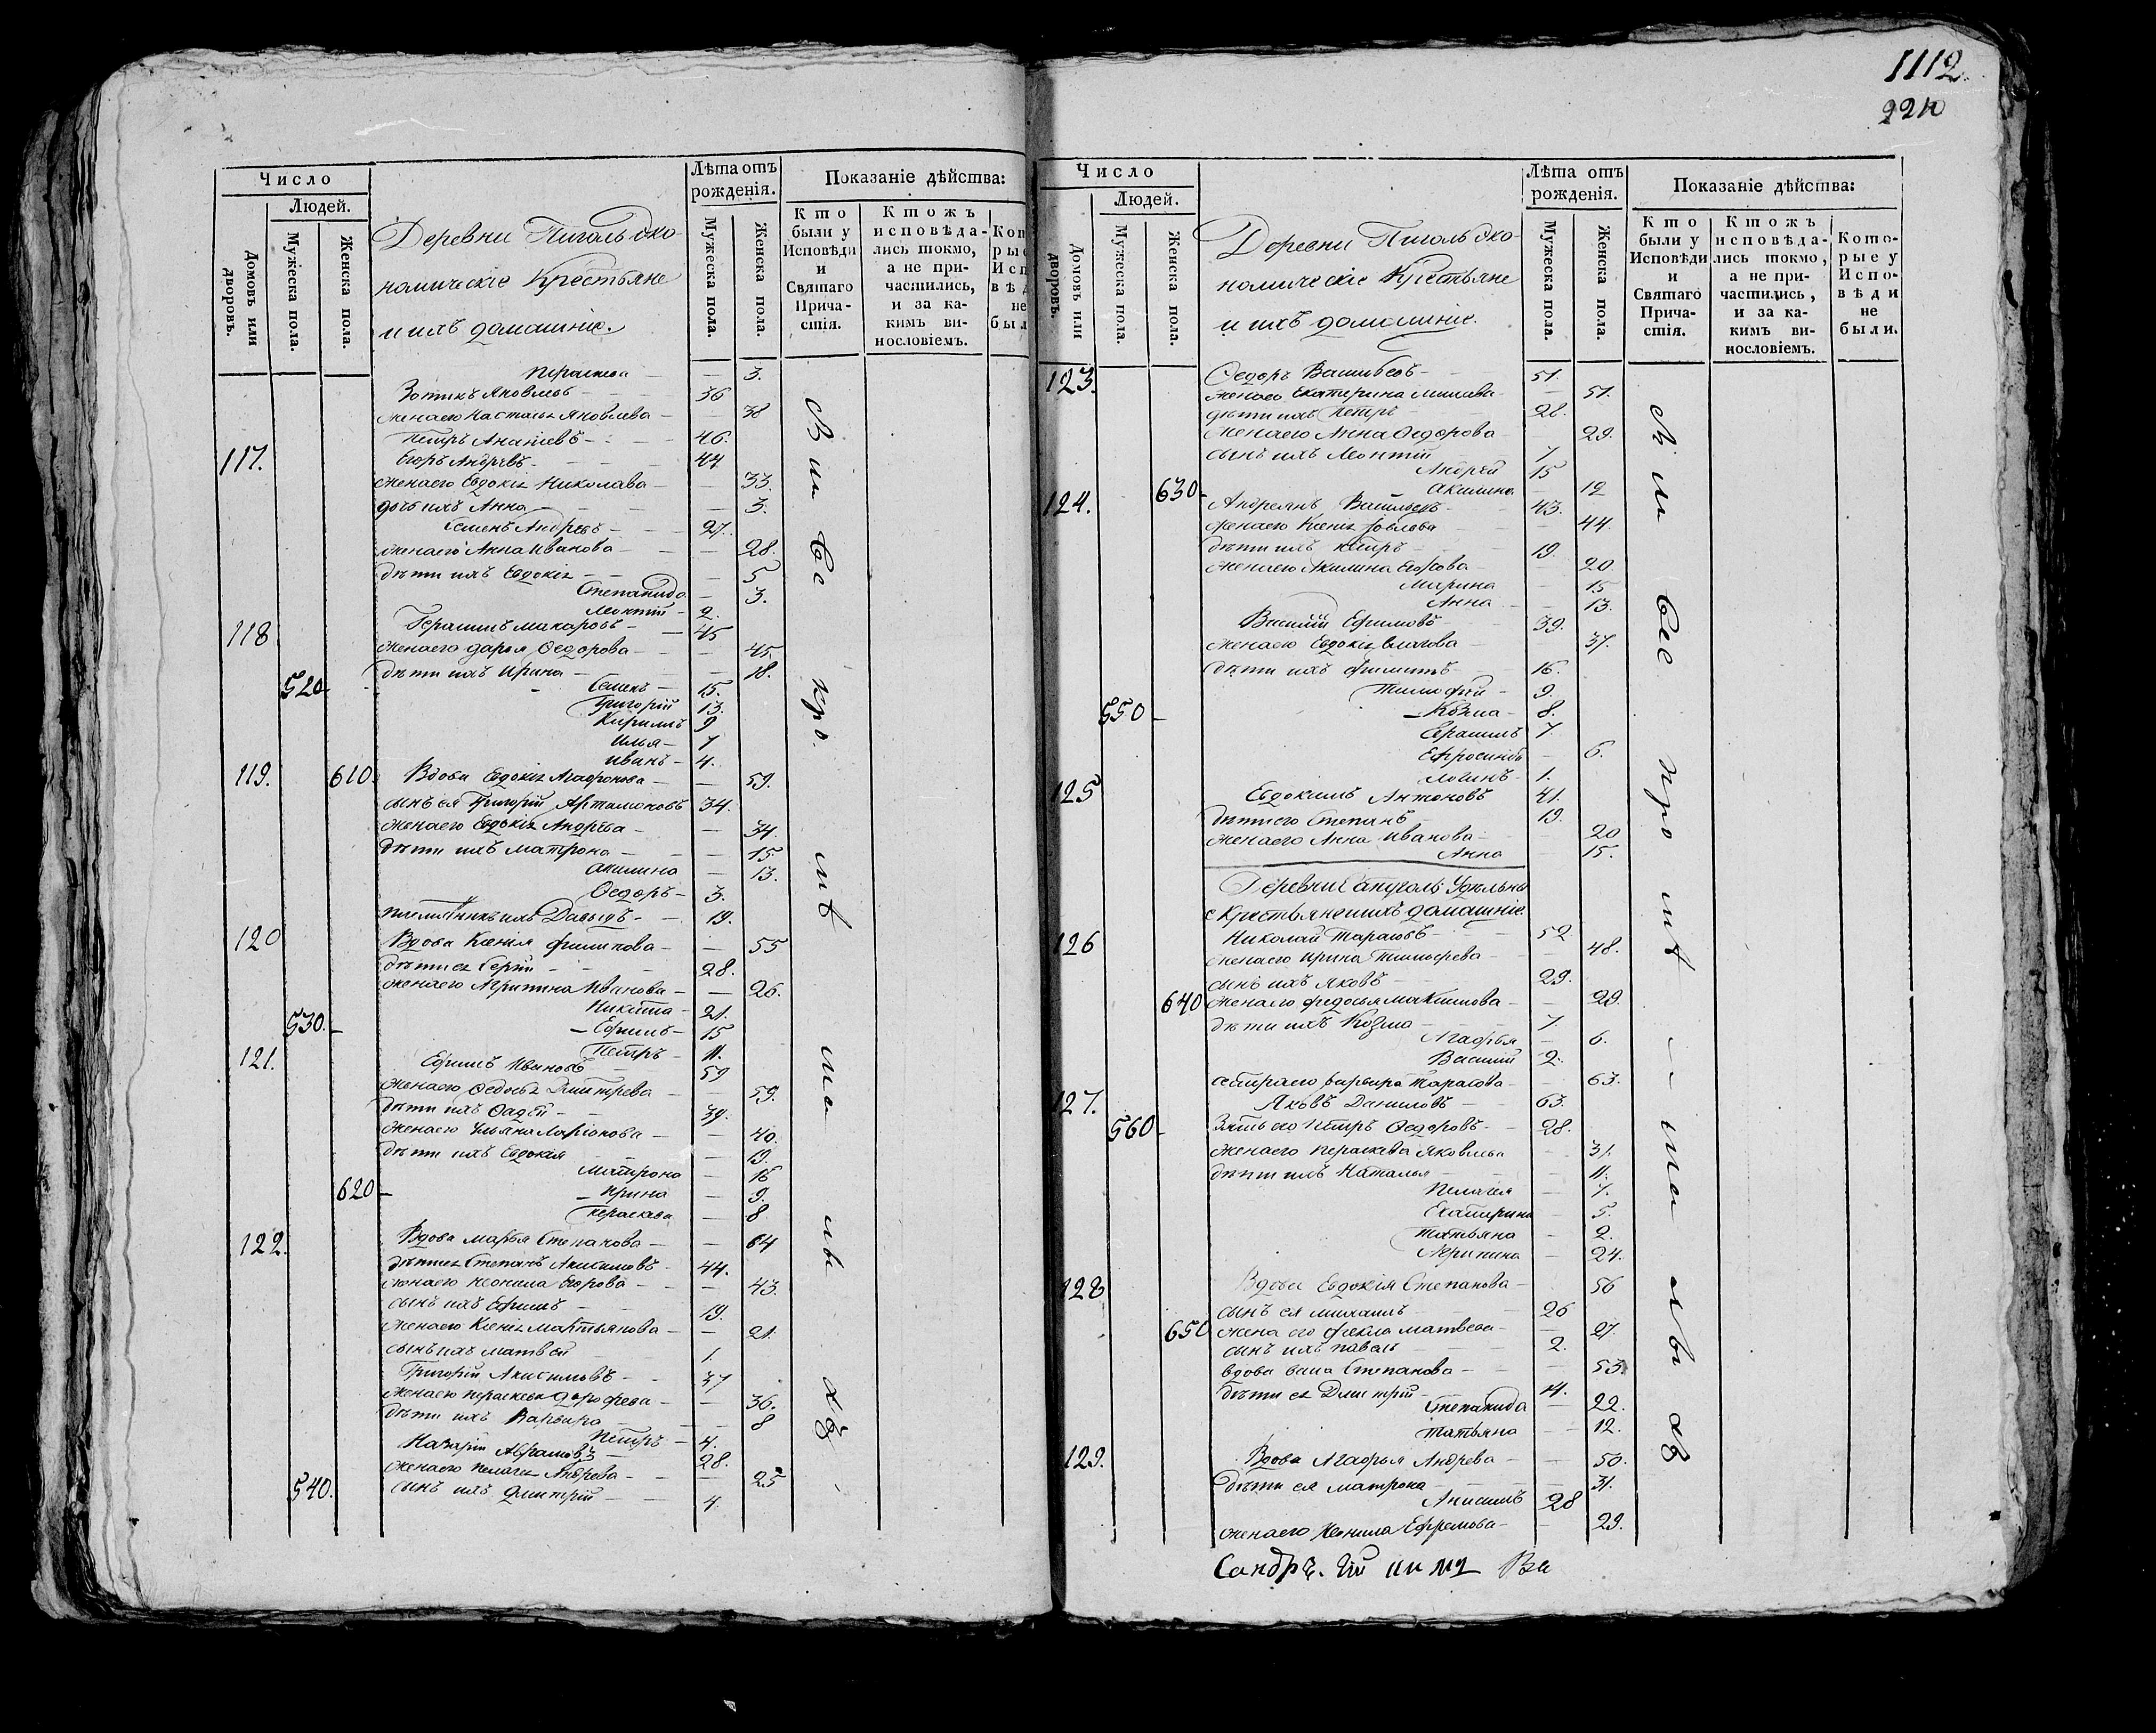 Число
Людей.
Домовъ или дворовъ.
Мужеска пола.
Женска пола.
Деревни Пиголь Эко-
номическіе Крестьяне
и ихъ домашніе.
Лѣта отъ рожденія.
Мужеска пола.
Женска пола.
Показаніе дѣйства:
Кто были у Исповѣди и Святаго Прича-стія.
Ктожъ исповѣда-лись токмо, а не при-частились, и за ка-кимъ ви-нословіемъ.
Параскева — 3.
Зотикъ Яковлевъ 36
жена его Настасья Яковлева — 38
Петръ Ананіевъ 46.
117. Егоръ Андреевъ 44
жена его Евдокія Николаева — 33.
дочь ихъ Анна — 3.
Семенъ Андреевъ 27.
жена его Анна Иванова — 28.
дѣти ихъ Евдокія — 5
Степанида — 3.
Леонтій 2.
118 Герасимъ Макаровъ 45
жена его Дарья Ѳедорова — 45.
дѣти ихъ Ирина — 18.
520. Семенъ 15.
Григорій 13.
Кирилъ 9
Илья 7
Иванъ 4.
119. 610. Вдова Евдокія Агафонова — 59.
сынъ ея Григорій Артамоновъ 34.
жена его Евдокія Андреева — 34.
дѣти ихъ Матрона — 15
Акилина — 13.
Ѳедоръ 3.
племянникъ ихъ Давыдъ 19.
120 Вдова Ксенія Филипова — 55
дѣти ея Сергій 28.
жена его Агрипина Иванова — 26.
Никита 21.
530. Ефимъ 15
Петръ 11.
121. Ефимъ Ивановъ 59
жена его Ѳедосья Дмитрева — 59.
дѣти ихъ Фадей 39.
жена его Ульяна Ларіонова — 40.
дѣти ихъ Евдокія — 19.
Матрона — 16
620 Ирина — 9.
Параскева — 8
122. Вдова Марья Степанова — 64
дѣти ея Степанъ Анисимовъ 44.
жена его Неонила Егорова — 43.
сынъ ихъ Ефимъ 19.
жена его Ксенія Мартьянова — 21.
сынъ ихъ Матвей 1.
Григорій Анисимовъ 37
жена его Параскева Дорофеева — 36.
дѣти ихъ Варвара — 8
Петръ 4.
Назарій Абрамовъ 28.
жена его Пелагея Андреева — 25
540. сынъ ихъ Дмитрій 4.
1112.
Число
Людей.
Домовъ или дворовъ.
Мужеска пола.
Женска пола.
Деревни Пиголь Эко-
номическіе Крестьяне
и ихъ домашніе.
Лѣта отъ рожденія.
Мужеска пола.
Женска пола.
Показаніе дѣйства:
Кто были у Исповѣди и Святаго Прича-стія.
Ктожъ исповѣда-лись токмо, а не при-частились, и за ка-кимъ ви-нословіемъ.
Кото-рые у Испо-вѣди не были.
123. Ѳедоръ Васильевъ 51.
жена его Екатерина — 51.
дѣти ихъ Петръ 28.
жена его Анна Ѳедорова — 29.
сынъ ихъ Леонтій 7
Андрей 15
630 Акилина — 12
124. Андреянъ Васильевъ 43.
жена его Ксенія — 44.
дѣти ихъ Петръ 19.
жена его Акилина Егорова — 20.
Марина — 15
Анна — 13.
Василій Ефимовъ 39.
жена его Евдокія — 37.
дѣти ихъ Филипъ 16.
Тимофей 9.
550 Козма 8.
Герасимъ 7
Ефросинья — 6.
Логинъ 1.
125 Евдокимъ Антоновъ 41.
дѣти его Степанъ 19.
жена его Анна Иванова — 20
Анна — 15.
Деревни Сапуголь Удѣльны
е Крестьяне и ихъ домашніе.
126 Николай Тарасовъ 52
жена его Ирина Тимофеева — 48.
сынъ ихъ Яковъ 29.
640 жена его Федосья Максимова — 29.
дѣти ихъ Козма 7.
Агафья — 6.
Василій 2.
сестра его Варвара Тарасова — 63.
127. Яковъ Даниловъ 63.
560 Зять его Петръ Ѳедоровъ 28.
жена его Параскева Яковлева — 31.
дѣти ихъ Наталья — 11.
Пелагея — 7.
Екатерина — 5.
Татьяна — 2.
Агрипина — 24.
128 Вдова Евдокія Степанова — 56
сынъ ея Михаилъ 26
650 жена его Фекла Матвеева — 27.
сынъ ихъ Павелъ 2.
вдова Степанова — 53.
дѣти ея Дмитрій 14.
Степанида — 22.
Татьяна — 12.
129. Вдова Агафья Андреева — 50.
дѣти ея Матрона — 31.
Анисимъ 28
жена его Неонила Ефремова — 29.